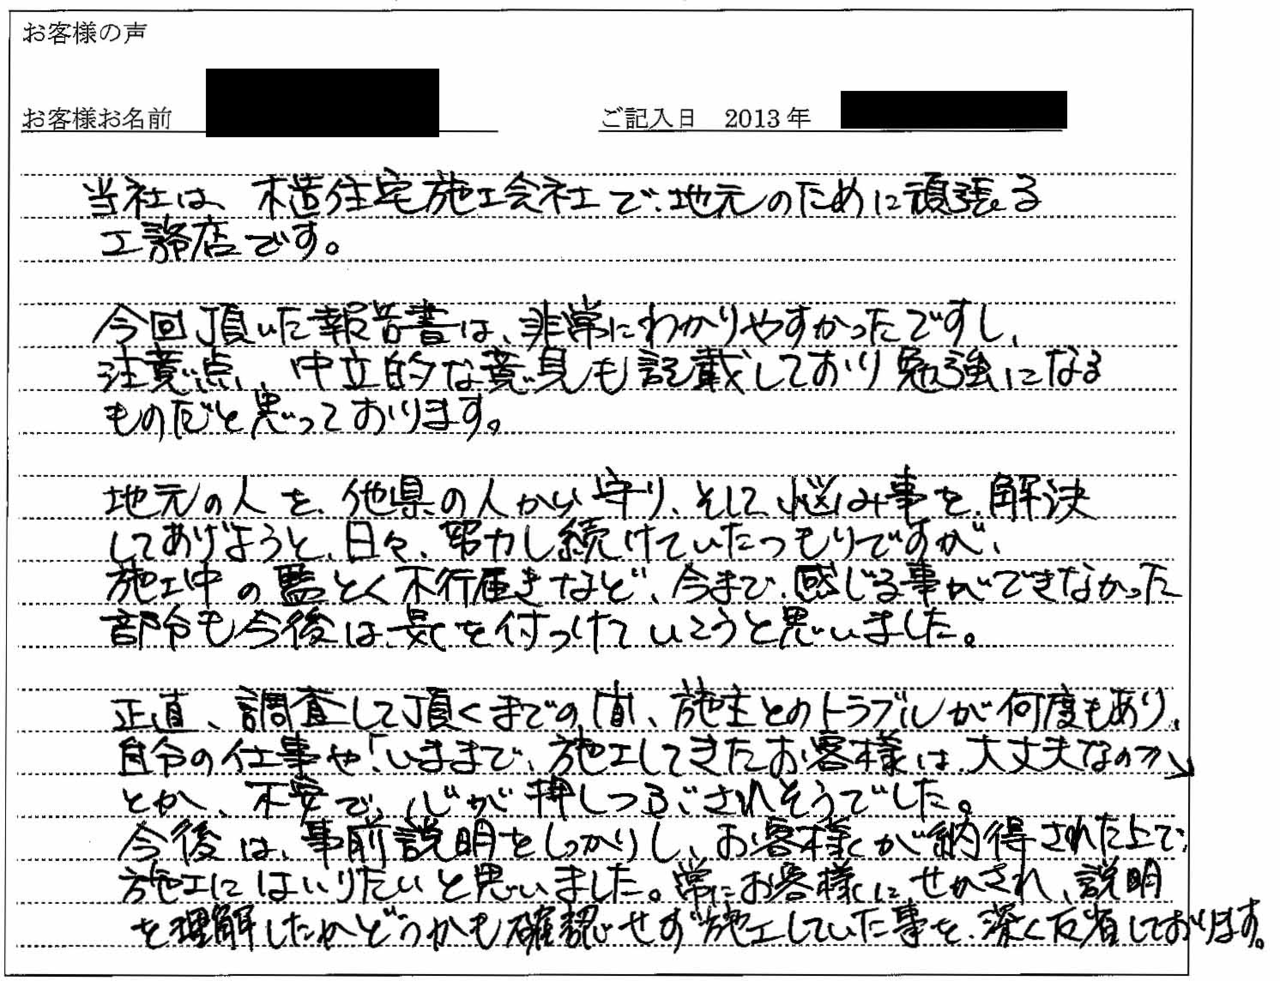 お客様の声
お客様お名前 ご記入日 2013年
当社は、木造住宅施工会社で、地元のために頑張る
工務店です。
今回頂いた報告書は、非常にわかりやすかったですし、
注意点、中立的な意見も記載しており勉強になる
ものだと思っております。
地元の人を、他県の人から守り、そして、悩み事を、解決
してあげようと、日々、努力し続けていたつもりですが、
施工中の監とく不行届きなど、今まで、感じる事ができなかった
部分も今後は、気を付つけていこうと思いました。
正直、調査して頂くまでの間、施主とのトラブルが何度もあり、
自分の仕事や「いままで、施工してきたお客様は、大丈夫なのか」
とか、不安で、心が押しつぶされそうでした。
今後は、事前説明をしっかりし、お客様が納得された上で、
施工にはいりたいと思いました。常にお客様にせかされ、説明
を理解したかどうかも確認せず施工していた事を、深く反省しております。